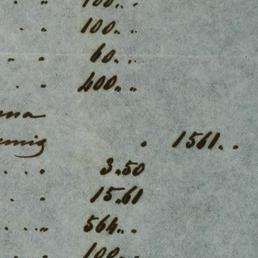 " " 100. "
" " 100. "
" " 60. "
" " 400. "
" 1561. "
. . . . 3.50
. . . 15.61
. . . . 564. .
. . . 100. "